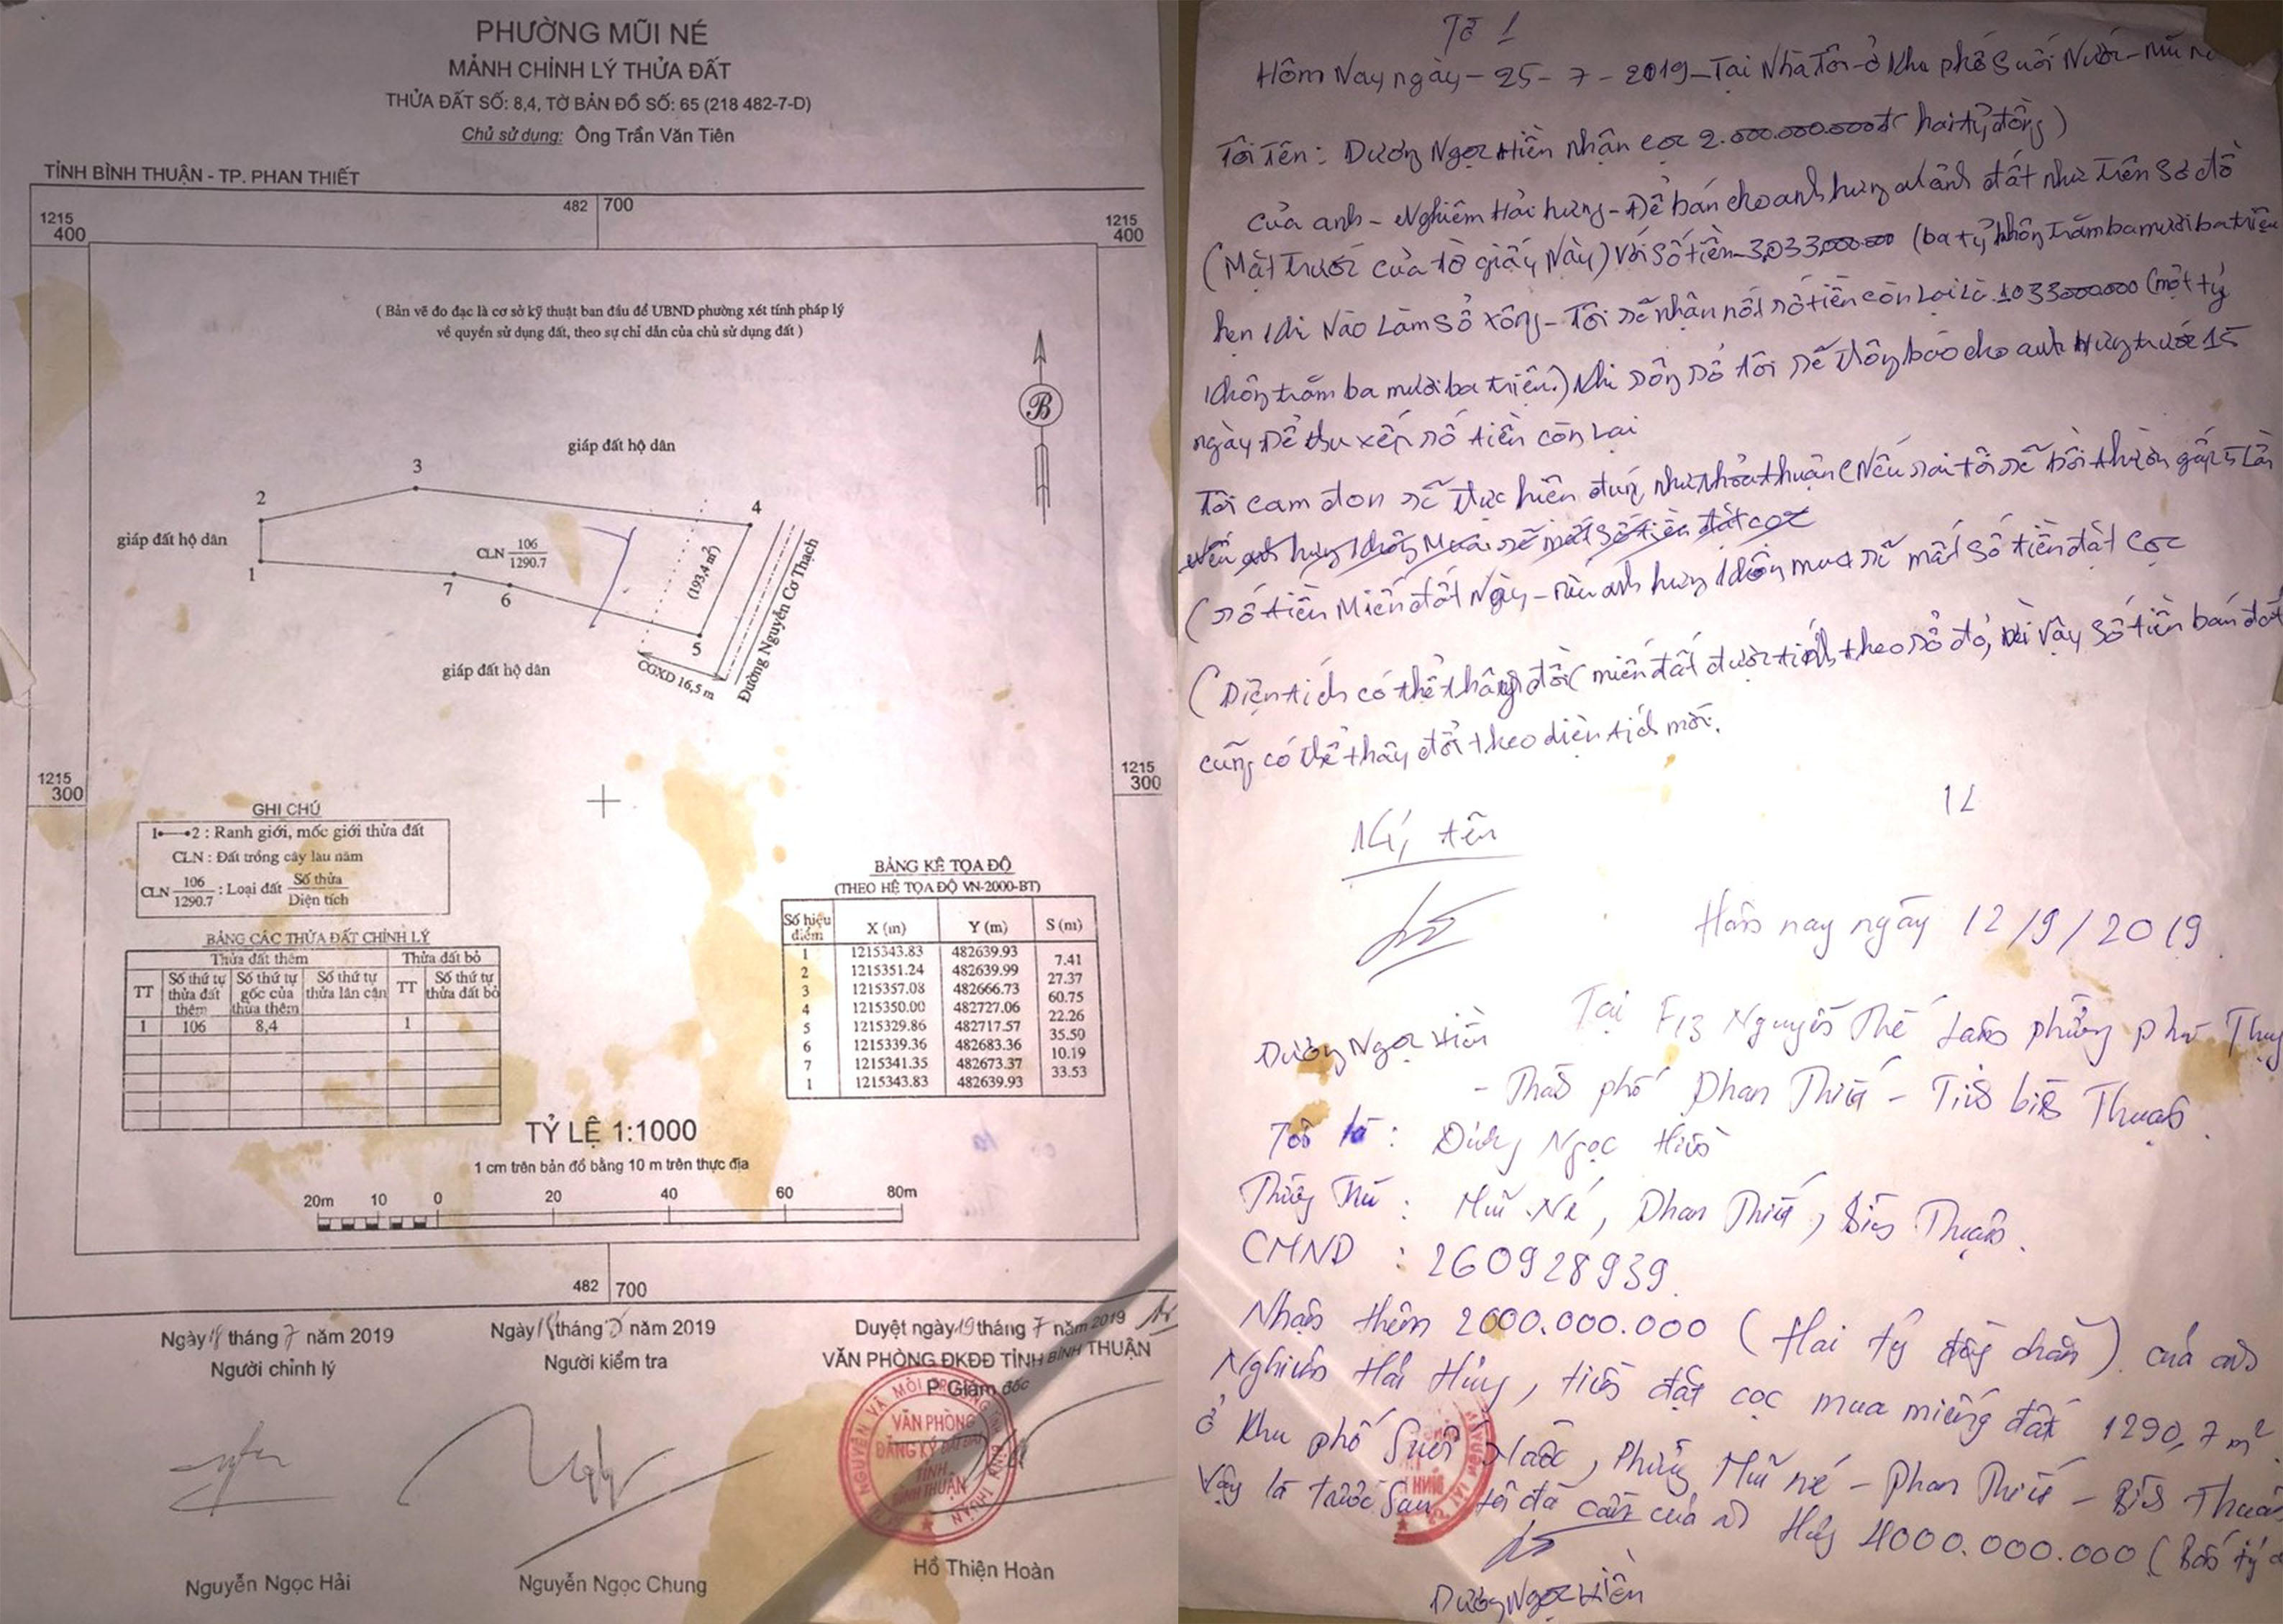 PHƯỜNG MŨI NÉ
MẢNH CHỈNH LÝ THỬA ĐẤT
THỬA ĐẤT SỐ: 8,4, TỜ BẢN ĐỒ SỐ: 65 (218 482-7-D)
Chủ sử dụng: Ông Trần Văn Tiên
TỈNH BÌNH THUẬN - TP. PHAN THIẾT
482 700
1215 400
1215 400
( Bản vẽ đo đạc là cơ sở kỹ thuật ban đầu để UBND phường xét tính pháp lý
về quyền sử dụng đất, theo sự chỉ dẫn của chủ sử dụng đất )
B
giáp đất hộ dân
3
2
4
giáp đất hộ dân
CLN 106/1290.7
(193,4 m²)
1
7
6
5
giáp đất hộ dân
CGXD 16,5 m
Đường Nguyễn Cơ Thạch
1215 300
1215 300
GHI CHÚ
1•—•2 : Ranh giới, mốc giới thửa đất
CLN : Đất trồng cây lâu năm
CLN 106/1290.7 : Loại đất Số thửa/Diện tích
BẢNG CÁC THỬA ĐẤT CHỈNH LÝ
Thửa đất thêm Thửa đất bỏ
TT Số thứ tự thửa đất thêm Số thứ tự gốc của thửa thêm Số thứ tự thửa lân cận TT Số thứ tự thửa đất bỏ
1 106 8,4 1
BẢNG KÊ TỌA ĐỘ
(THEO HỆ TỌA ĐỘ VN-2000-BT)
Số hiệu điểm X (m) Y (m) S (m)
1 1215343.83 482639.93
7.41
2 1215351.24 482639.99
27.37
3 1215357.08 482666.73
60.75
4 1215350.00 482727.06
22.26
5 1215329.86 482717.57
35.50
6 1215339.36 482683.36
10.19
7 1215341.35 482673.37
33.53
1 1215343.83 482639.93
TỶ LỆ 1:1000
1 cm trên bản đồ bằng 10 m trên thực địa
20m 10 0 20 40 60 80m
482 700
Ngày 18 tháng 7 năm 2019
Người chỉnh lý
Nguyễn Ngọc Hải
Ngày 18 tháng 7 năm 2019
Người kiểm tra
Nguyễn Ngọc Chung
Duyệt ngày 19 tháng 7 năm 2019
VĂN PHÒNG ĐKĐĐ TỈNH BÌNH THUẬN
P. Giám đốc
VĂN PHÒNG
ĐĂNG KÝ ĐẤT ĐAI
TỈNH
BÌNH THUẬN
Hồ Thiện Hoàn
Tờ 1
Hôm Nay ngày - 25 - 7 - 2019 - Tại Nhà Tôi - ở Khu phố Suối Nước - Mũi
Tôi Tên: Dương Ngọc Hiền nhận cọc 2.000.000.000đ ( hai tỷ đồng )
của anh - Nghiêm Hải hưng - Để bán cho anh hưng mảnh đất như trên sơ đồ
( Mặt trước của tờ giấy Này ) với số tiền 3,033,000.000 ( ba tỷ không trăm ba mươi ba triệu
hẹn khi Nào Làm sổ xông - Tôi sẽ nhận nốt số tiền còn Lại là 1033000.000 ( một tỷ
không trăm ba mươi ba triệu.) khi sông sổ tôi sẽ thông báo cho anh Hưng trước 15
ngày để thu xếp số tiền còn Lại
Tôi cam đon sẽ thực hiện đúng như thỏa thuận ( Nếu sai tôi sẽ bồi thường gấp 5 Lần
Nếu anh hưng không Mua sẽ mất số tiền đặt cọc
( số tiền Miến đất Này - nếu anh hưng không mua sẽ mất số tiền đặt cọc
( Diện tích có thể thây đổi ( miến đất được tính theo sổ đỏ, vì vậy số tiền bán đất
cũng có thể thây đổi theo diện tích mới.
Kí tên
12
Dương Ngọc Hiền
Hôm nay ngày 12/9/2019
Tại F13 Nguyễn Thế Lâm phường phú Thuỷ
- Thành phố Phan Thiết - Tỉnh bình Thuận.
Tôi là: Dương Ngọc Hiền
Thường Trú: Mũi Né, Phan Thiết, Bình Thuận.
CMND : 260928939
Nhận thêm 2000.000.000 ( Hai tỷ đồng chẵn ) của anh
Nghiêm Hải Hưng, tiền đặt cọc mua miếng đất 1290,7 m²
ở khu phố Suối Nước, Phường Mũi né - Phan Thiết - Bình Thuận
Vậy là trước Sau tôi đã cầm của anh Hưng 4000.000.000 ( Bốn tỷ
Dương Ngọc Hiền